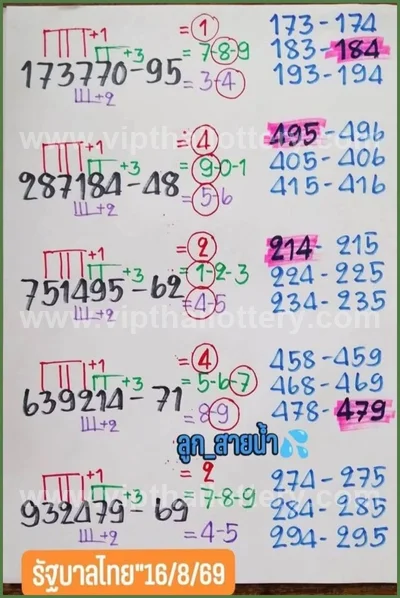 +1 = 1 173-174
+3 = 7-8-9 183-184
173770-95 = 3-4 193-194
+2
www.vipthailottery.com
+1 = 4 495-496
+3 = 9-0-1 405-406
287184-48 = 5-6 415-416
+2
+1 = 2 214-215
+3 = 1-2-3 224-225
751495-62 = 4-5 234-235
+2
www.vipthailottery.com
+1 = 4 458-459
+3 = 5-6-7 468-469
639214-71 = 8-9 478-479
+2
ลูก_สายน้ำ💦
+1 = 2 274-275
+3 = 7-8-9 284-285
932479-69 = 4-5 294-295
www.vipthailottery.com
+2
รัฐบาลไทย"16/8/69